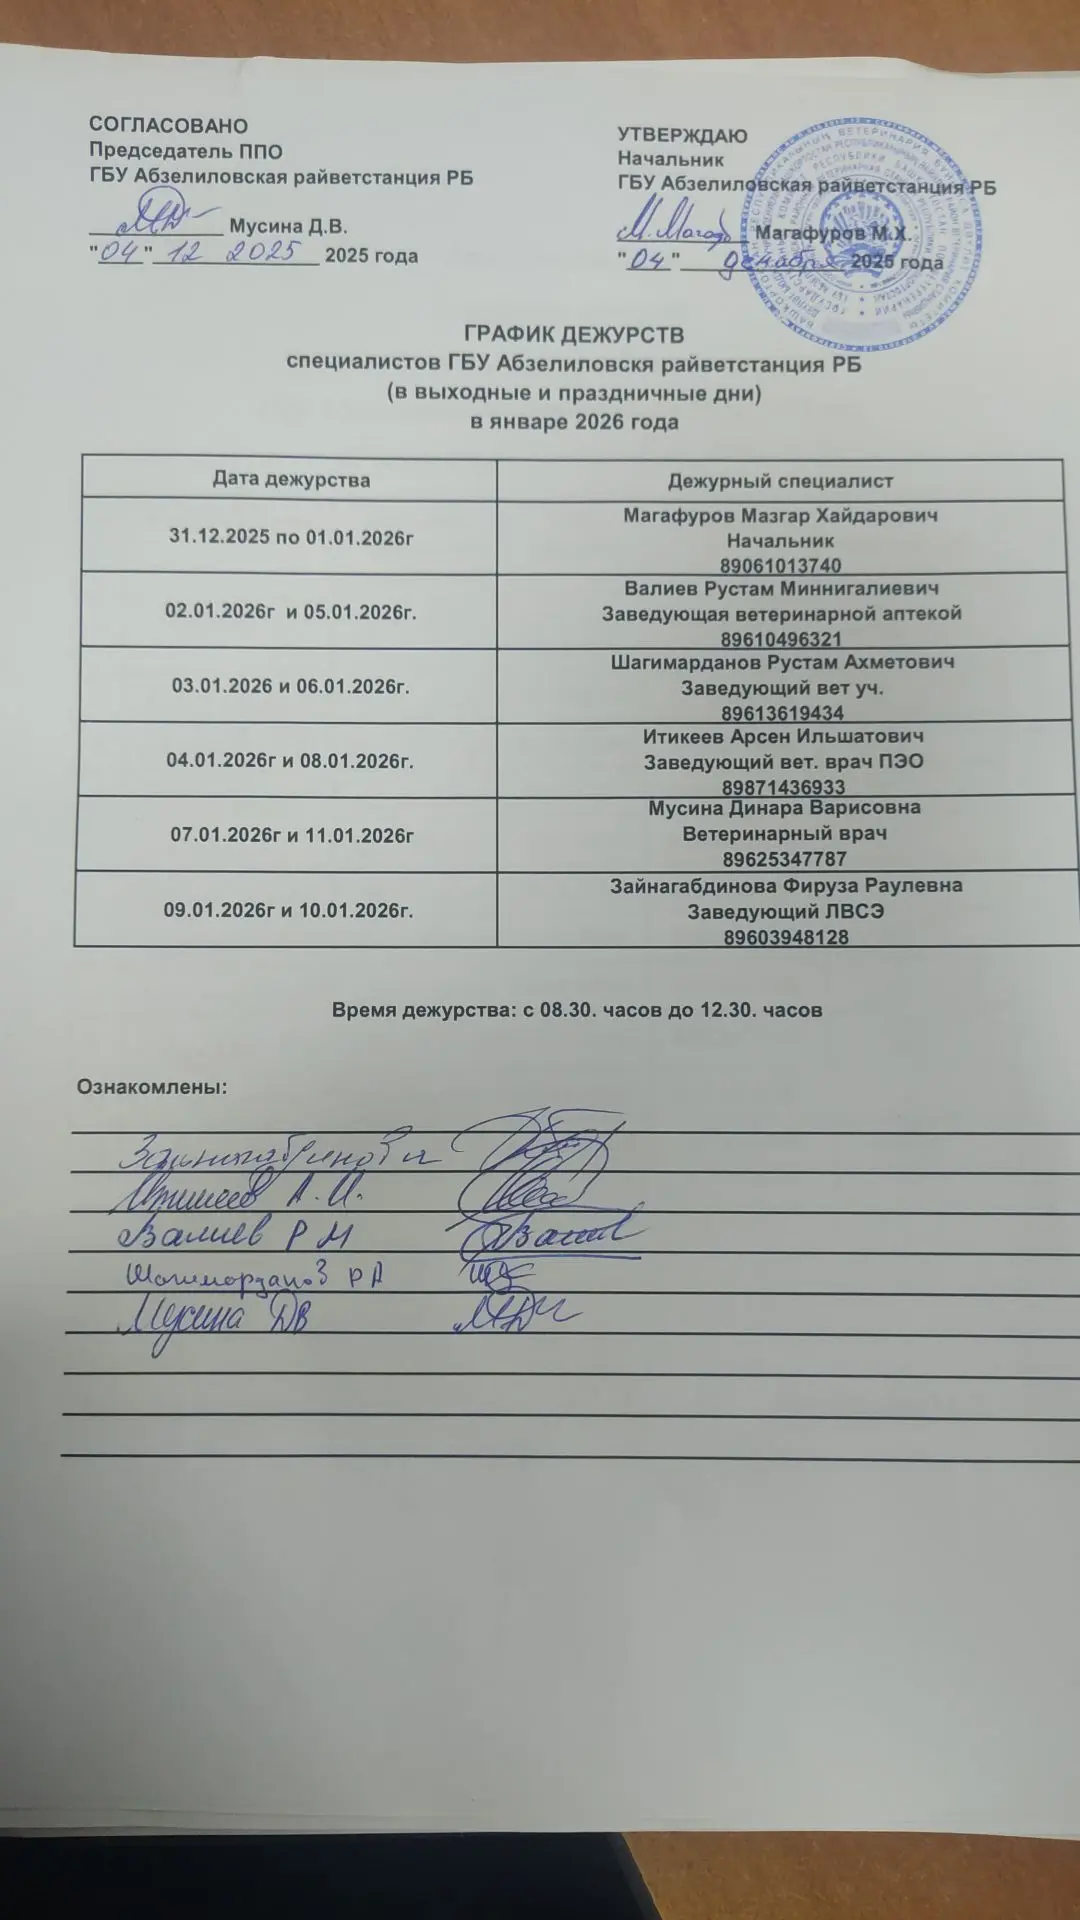 СОГЛАСОВАНО
Председатель ППО
ГБУ Абзелиловская райветстанция РБ
Мусина Д.В.
"04" 12 2025 2025 года
УТВЕРЖДАЮ
Начальник
ГБУ Абзелиловская райветстанция РБ
М. Магафу Магафуров М.Х.
"04" декабря 2025 года
ГРАФИК ДЕЖУРСТВ
специалистов ГБУ Абзелиловскя райветстанция РБ
(в выходные и праздничные дни)
в январе 2026 года
Дата дежурства
Дежурный специалист
31.12.2025 по 01.01.2026г
Магафуров Мазгар Хайдарович
Начальник
89061013740
02.01.2026г и 05.01.2026г.
Валиев Рустам Миннигалиевич
Заведующая ветеринарной аптекой
89610496321
03.01.2026 и 06.01.2026г.
Шагимарданов Рустам Ахметович
Заведующий вет уч.
89613619434
04.01.2026г и 08.01.2026г.
Итикеев Арсен Ильшатович
Заведующий вет. врач ПЭО
89871436933
07.01.2026г и 11.01.2026г
Мусина Динара Варисовна
Ветеринарный врач
89625347787
09.01.2026г и 10.01.2026г.
Зайнагабдинова Фируза Раулевна
Заведующий ЛВСЭ
89603948128
Время дежурства: с 08.30. часов до 12.30. часов
Ознакомлены:
Зайнагабдинова
Итикеев А.И.
Валиев Р М
Шагимарданов Р А
Мусина ДВ